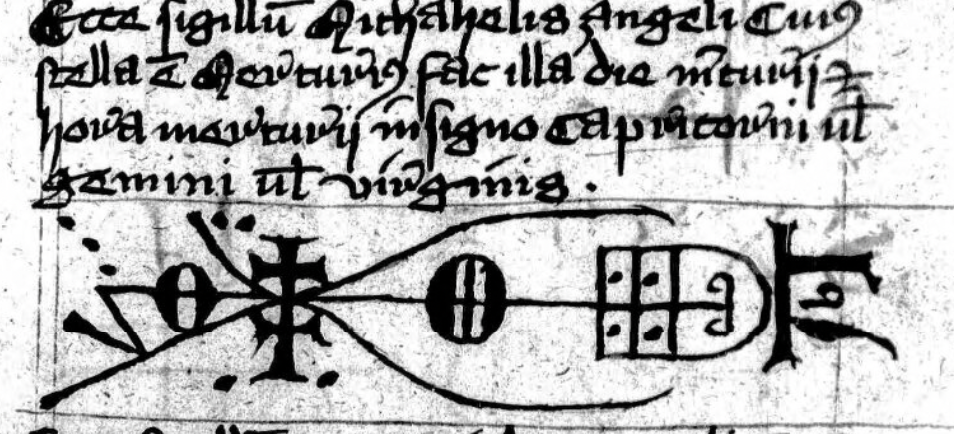 Ecce sigillū Michahelis angeli Cuiꝯ
stella ē Mercuriꝯ fac illa die m̄curij ⁊
hora mercurij in signo Capricorni ul̄
gemini ul̄ virginis .